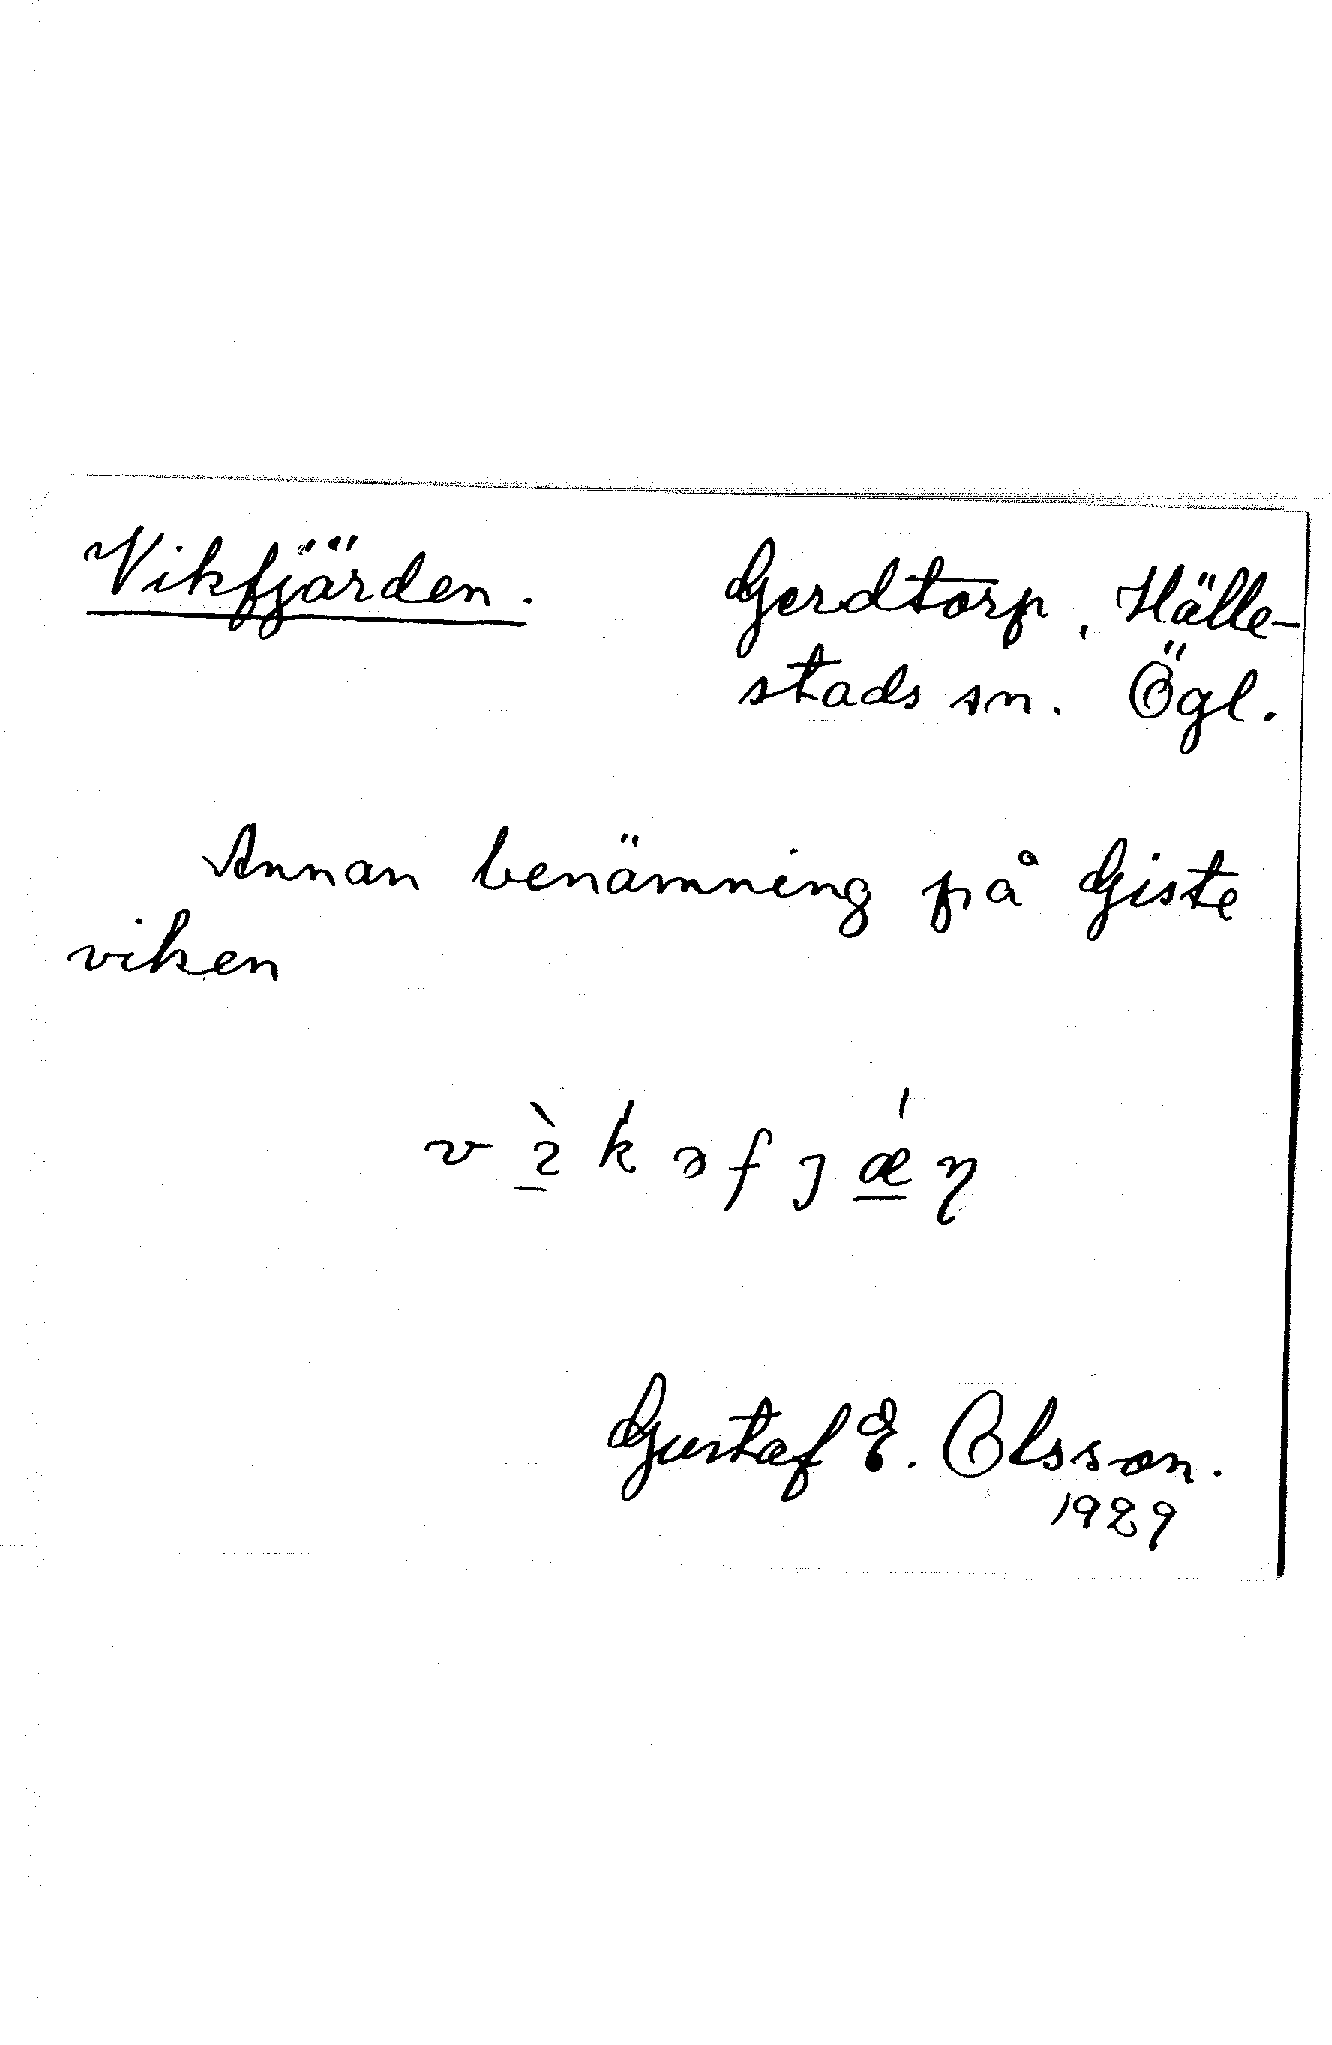 Vikfjärden. Gerdtorp, Hälle-
stads sn. Ögl.
Annan benämning på Giste
viken
Gustaf E. Olsson.
1929